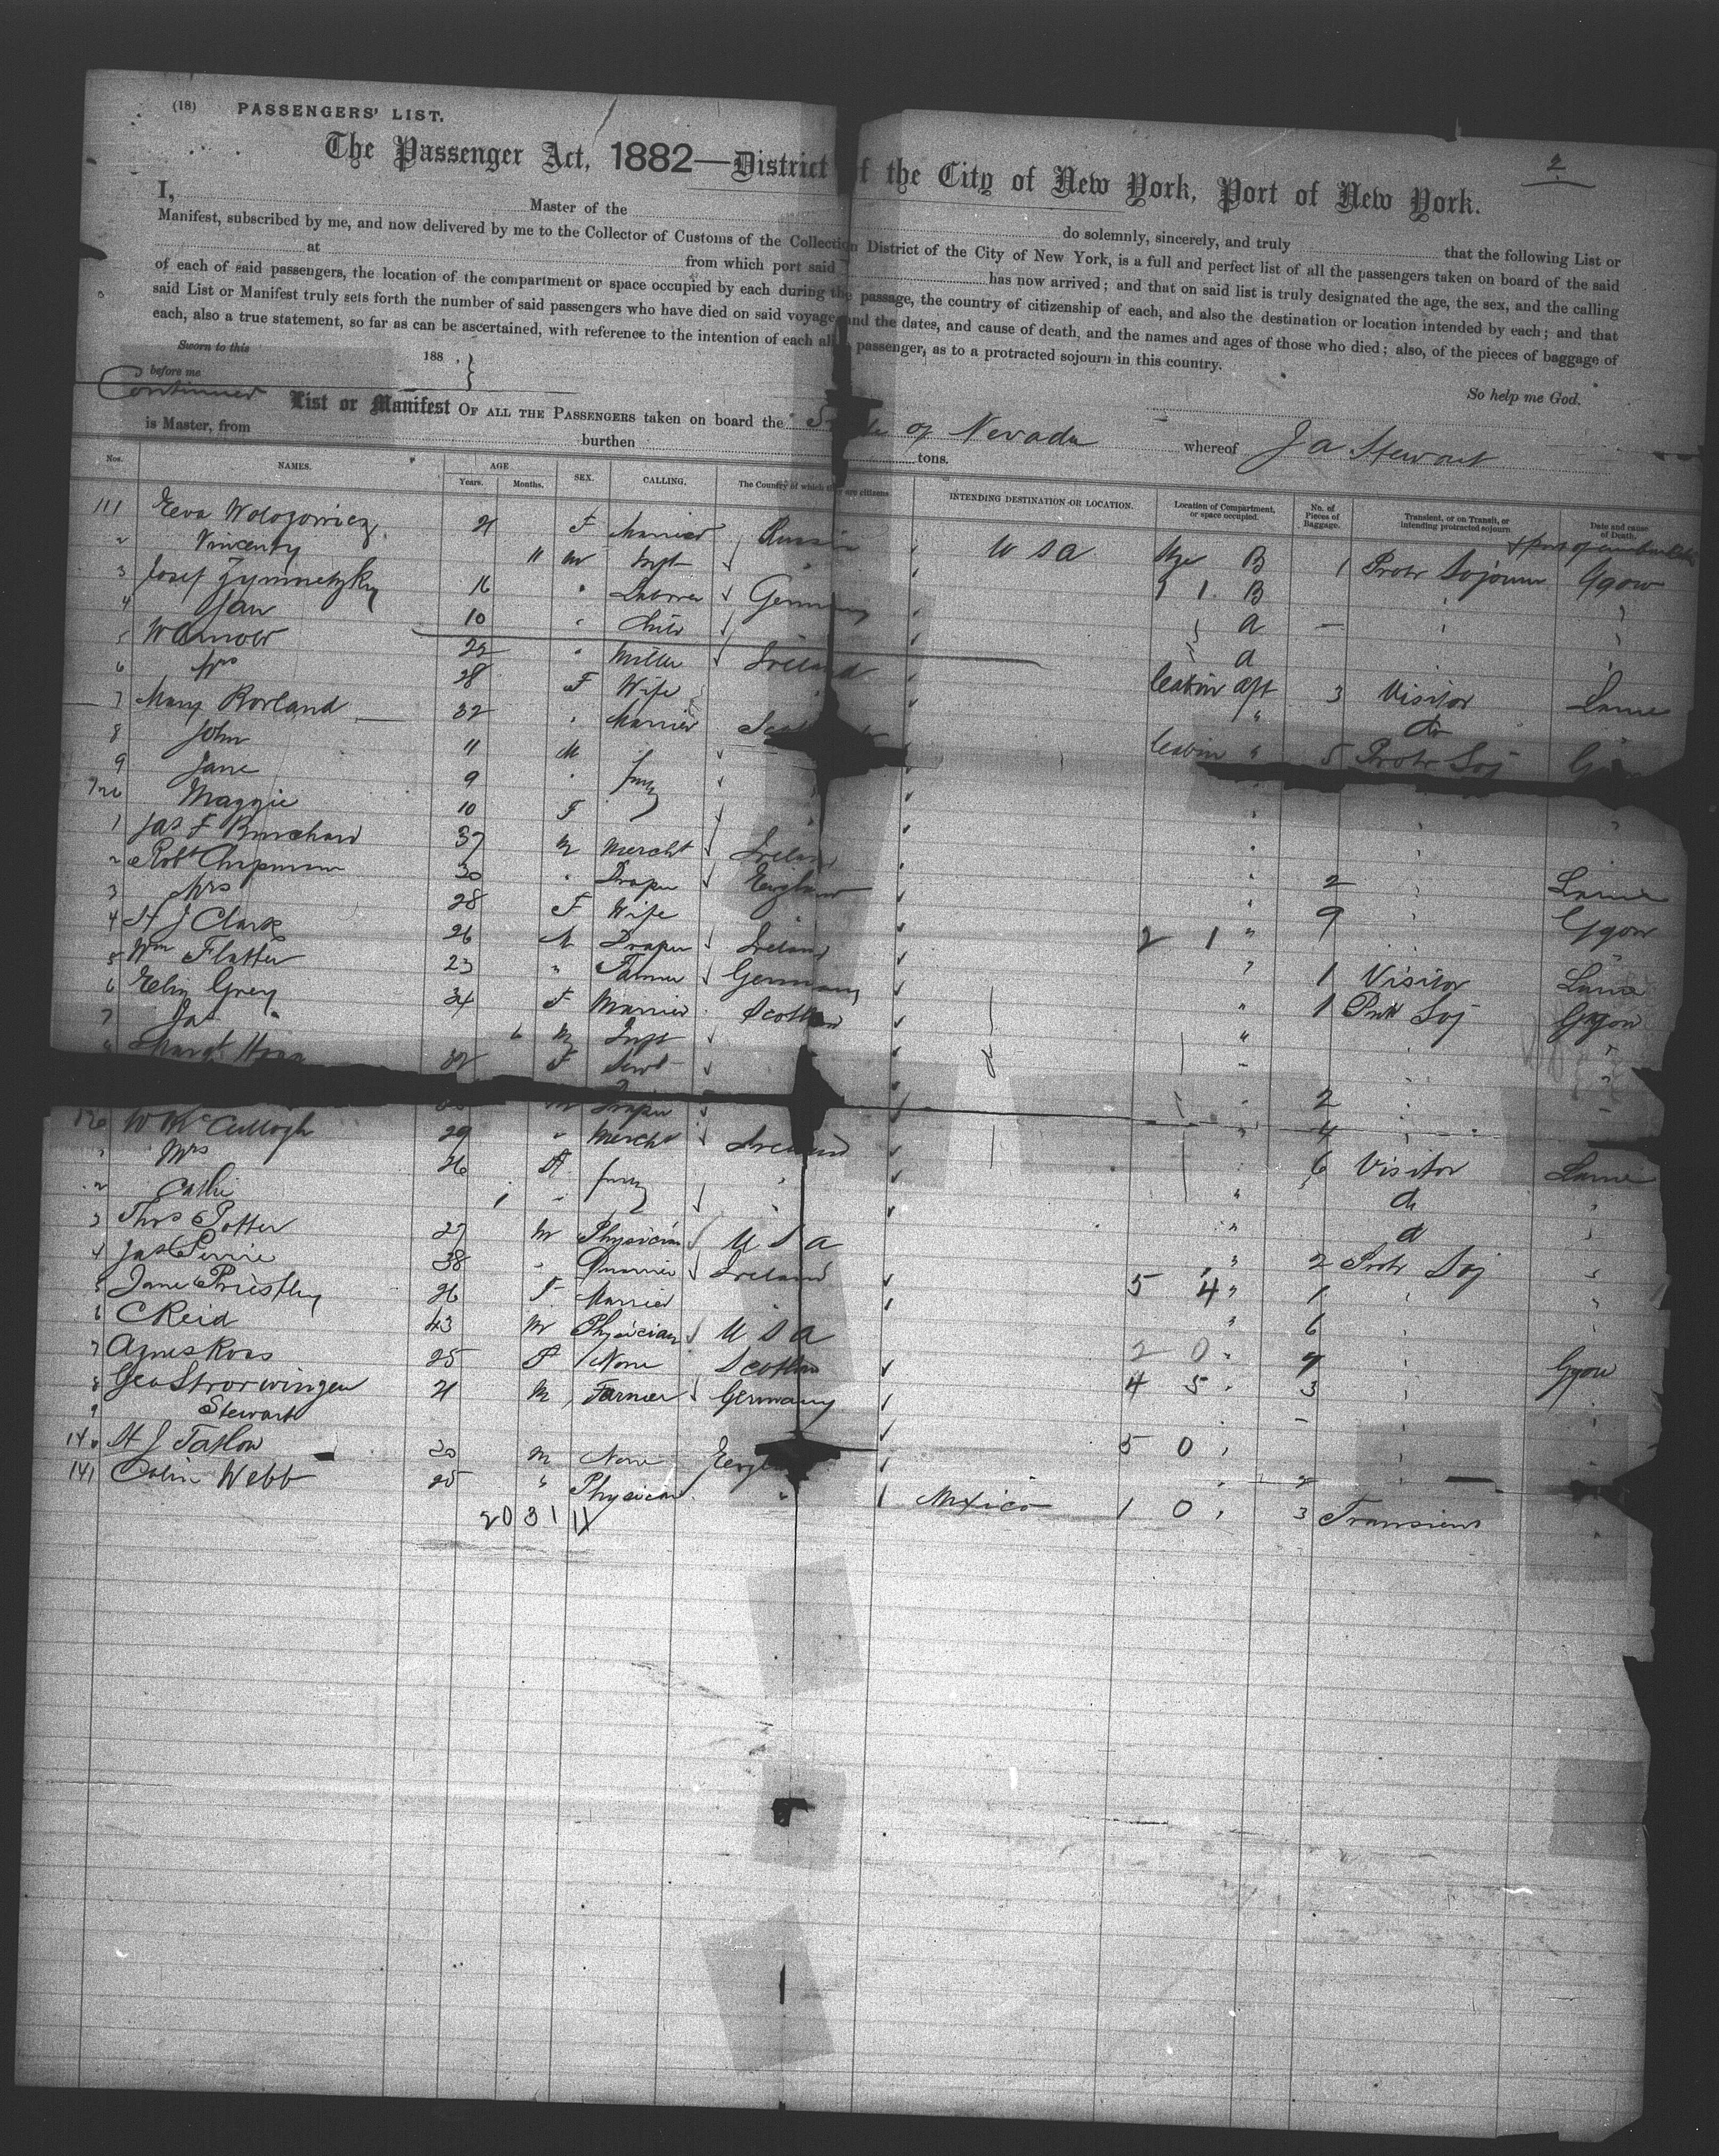 (18) PASSENGERS' LIST.
2
The Passenger Act, 1882—District of the City of New York, Port of New York.
I, Master of the do solemnly, sincerely, and truly that the following List or
Manifest, subscribed by me, and now delivered by me to the Collector of Customs of the Collection District of the City of New York, is a full and perfect list of all the passengers taken on board of the said
at from which port said has now arrived; and that on said list is truly designated the age, the sex, and the calling
of each of said passengers, the location of the compartment or space occupied by each during the passage, the country of citizenship of each, and also the destination or location intended by each; and that
said List or Manifest truly sets forth the number of said passengers who have died on said voyage and the dates, and cause of death, and the names and ages of those who died; also, of the pieces of baggage of
each, also a true statement, so far as can be ascertained, with reference to the intention of each alien passenger, as to a protracted sojourn in this country.
Sworn to this 188 .
before me
So help me God.
Continued List or Manifest OF ALL THE PASSENGERS taken on board the State of Nevada whereof J A Stewart
is Master, from burthen tons.
Nos. NAMES. AGE Years. Months. SEX. CALLING. The Country of which they are citizens INTENDING DESTINATION OR LOCATION. Location of Compartment, or space occupied. No. of Pieces of Baggage. Transient, or on Transit, or intending protracted sojourn. Date and cause of Death.
111 Eeva Wolozowicz 21 F Married Russia U S A Stge B 1 Protr Sojourn Ggow
2 Vincenty 11 M Inft " 1 1 B
3 Josef 16 " Laborer Germany " a —
4 Jan 10 " Child a
5 W Arnold 22 " Miller Ireland Cabin aft 3 Visitor Larne
6 Mrs 28 F Wife " " do
7 Mary Borland 32 " Married Cabin " 5 Protr Soj
8 John 11 M
9 Jane 9 " fmly
120 Maggie 10 F
1 Jas F Burchard 37 M Mercht Ireland " 2 " Larne
2 Robt Chapman 30 " Draper England " 9 " Ggow
3 Mrs 28 F Wife 2 1 "
4 H J Clark 26 M Draper Ireland " 1 Visitor Larne
5 Wm Flatter 23 " Farmer Germany " 1 Protr Soj Ggow
6 Eliz Grey 34 F Married Scotland "
7 Jas " 6 M Inft
8 Margt 32 F Servt " 2
M Draper " 4
130 W McCullogh 29 " Mercht Ireland 6 Visitor Larne
" Mrs 26 F fmly " " do
2 Cathie 1 " " " do
3 Thos Potter 27 M Physician U S A " 2 Protr Soj "
4 Jas Pirrie 38 " Ireland 5 4 " 1 " "
5 Jane Priestley 26 F Married " 6
6 C Reid 43 M Physician U S A 2 0 " 7 " Ggow
7 Agnes Ross 25 F None Scotland 4 5 " 3
8 Geo 21 M Farmer Germany " —
9 Stewart 5 0 "
140 H J Tatlow 20 M None England " 2 "
141 Colin Webb 25 " Physician " Mexico 1 0 " 3 Transient
20 3 1 11